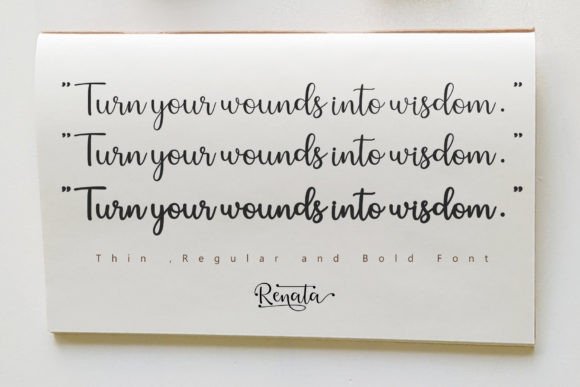 "Turn your wounds into wisdom."
"Turn your wounds into wisdom."
"Turn your wounds into wisdom."
Thin ,Regular and Bold Font
Renata